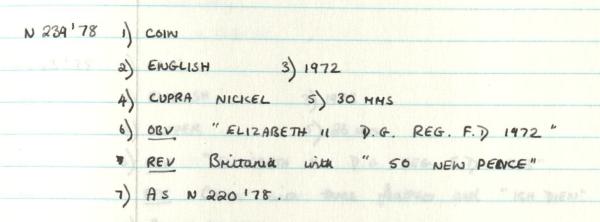 N 239 '78 1) COIN
2) ENGLISH 3) 1972
4) CUPRA NICKEL 5) 30 MMS
6) OBV " ELIZABETH II D.G. REG. F.D 1972 "
REV Brittania with " 50 NEW PENCE"
7) AS N 220 '78.